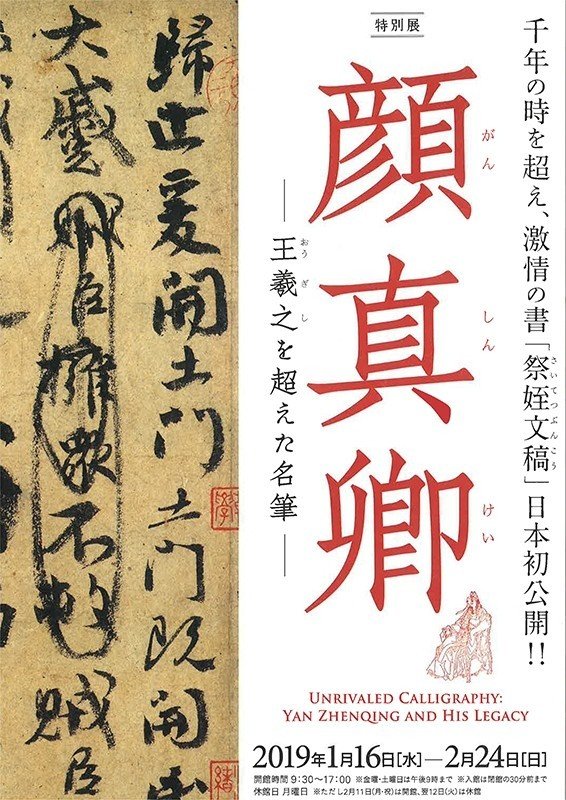 特別展
千年の時を超え、激情の書「祭姪文稿」日本初公開!!
さいてつぶんこう
顔真卿
がん しん けい
―王羲之を超えた名筆―
おう ぎ し
歸止爰開土門土門既開
大蹙賊臣擁衆不救賊臣
UNRIVALED CALLIGRAPHY:
YAN ZHENQING AND HIS LEGACY
2019年1月16日[水]―2月24日[日]
開館時間 9:30〜17:00 ※金曜・土曜日は午後9時まで ※入館は閉館の30分前まで
休館日 月曜日 ※ただし2月11日(月・祝)は開館、翌12日(火)は休館